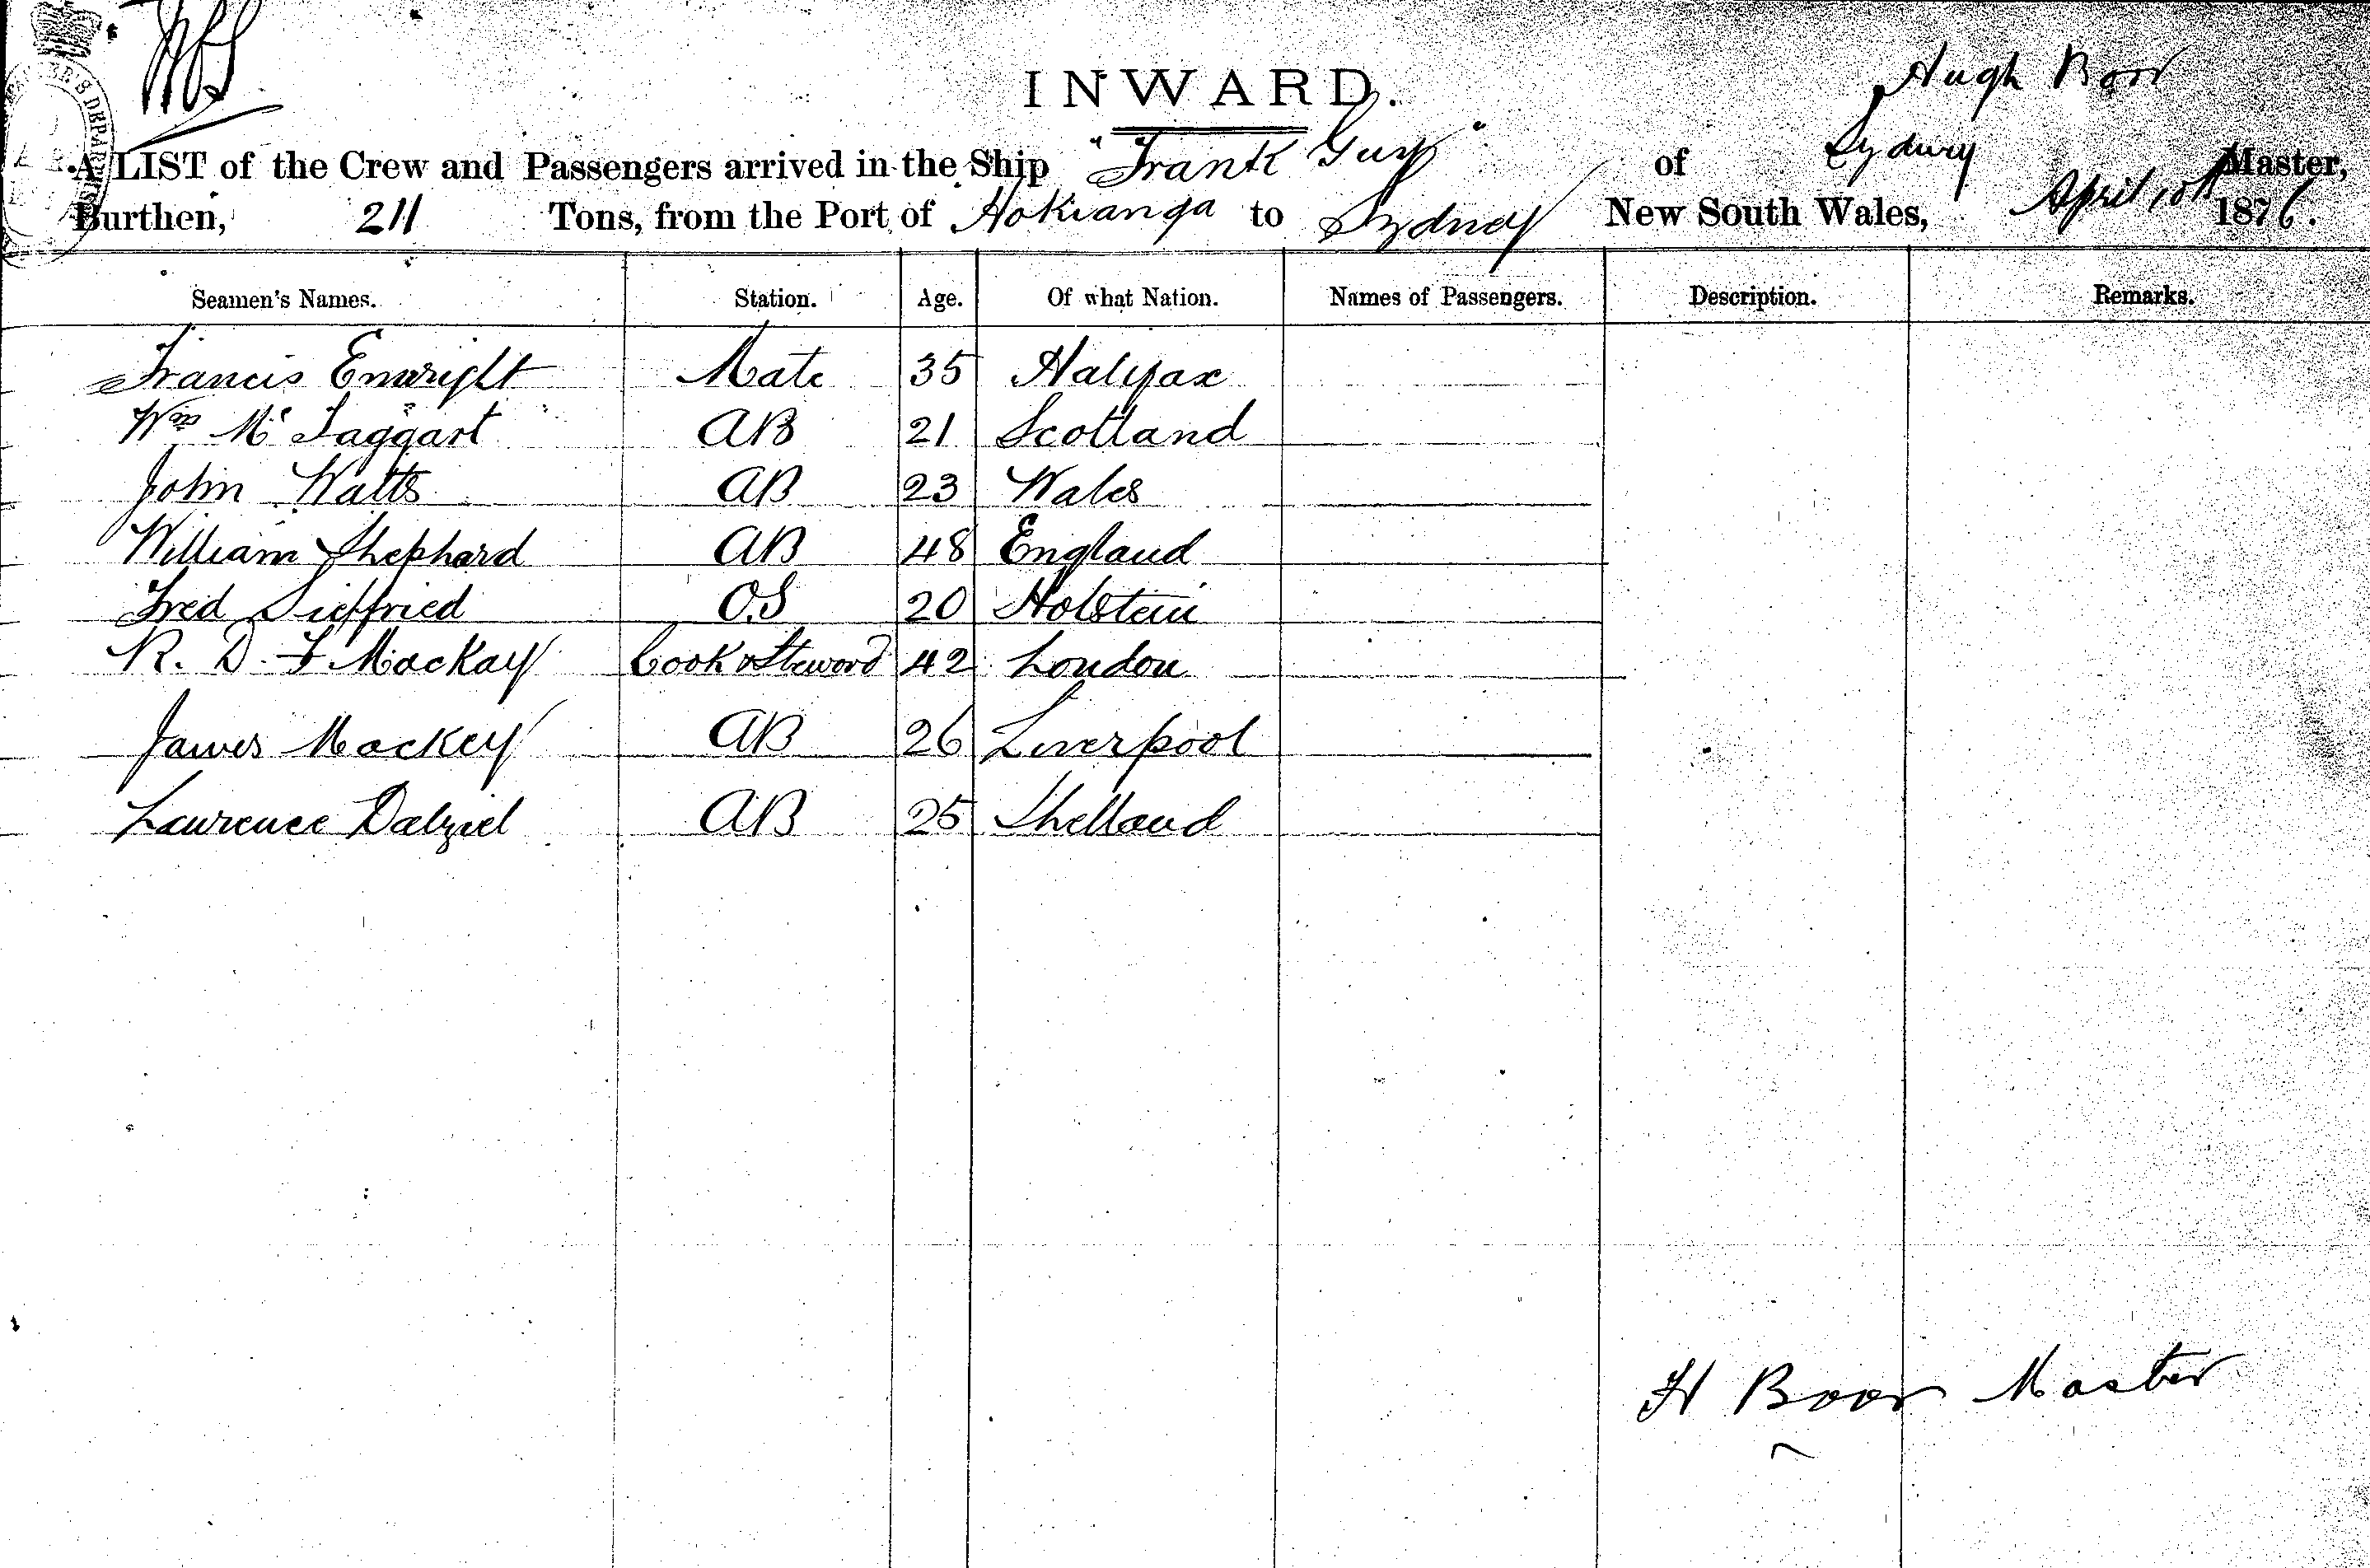 INWARD.
Hugh Boor
A LIST of the Crew and Passengers arrived in the Ship "Frank Guy" of Sydney Master,
Burthen, 211 Tons, from the Port of Hokianga to Sydney New South Wales, April 10th 1876.
Seamen's Names. Station. Age. Of what Nation. Names of Passengers. Description. Remarks.
Francis Enwright Mate 35 Halifax
Wm Mc Taggart AB 21 Scotland
John Watts AB 23 Wales
William Shephard AB 48 England
Fred Sieffried O.S 20 Holstein
R. D. F Mackay Cook & Steward 42 London
James Mackey AB 26 Liverpool
Laurence Dalziel AB 25 Shetland
H Boor Master